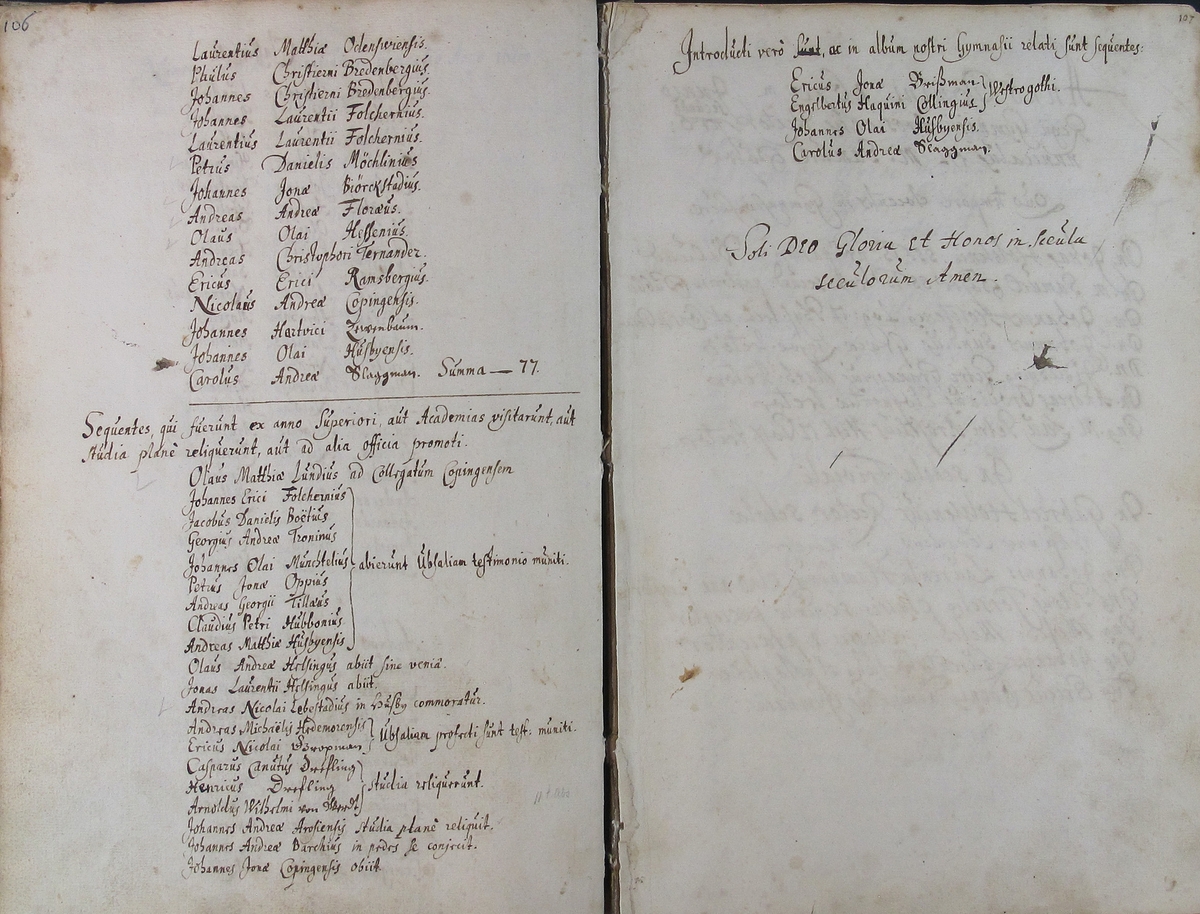 106
Laurentius Matthiæ Odenswiensis.
Paulus Christierni Bredenbergius.
Johannes Christierni Bredenbergius.
Johannes Laurentii Folchernius.
Laurentius Laurentii Folchernius.
Petrus Danielis Möchlinius
Johannes Jonæ Biörckstadius.
Andreas Andreæ Floræus.
Olaus Olai Hessenius.
Andreas Christophori Fernander.
Ericus Erici Ramsbergius.
Nicolaus Andreæ Copingensis.
Johannes Hartvici
Johannes Olai Husbyensis.
Carolus Andreæ Slaggman. Summa — 77.
Sequentes, qui fuerunt ex anno Superiori, aut Academias visitarunt, aut
studia planè reliquerunt, aut ad alia officia promoti.
Olaus Matthiæ Lundius ad Collegatum Copingensem
Johannes Erici Folchernius
Jacobus Danielis Boëtius
Georgius Andreæ Troninus
Johannes Olai Munchtelius abierunt Ubsaliam testimonio muniti.
Petrus Jonæ Oppius
Andreas Georgii Tillæus
Claudius Petri Hubbonius
Andreas Matthiæ Husbyensis
Olaus Andreæ Helsingus abiit sine veniâ.
Jonas Laurentii Helsingus abiit.
Andreas Nicolai Lebestadius in Husby commoratur.
Andreas Michaëlis Hedemorensis
Ericus Nicolai Ubsaliam profecti sunt test: muniti.
Casparus Canutus Drefling
Henricus Drefling studia reliquerunt.
Arnoldus Wilhelmi von
Johannes Andreæ Arosiensis studia planè reliquit.
Johannes Andreæ Barchius in pedes se conjecit.
Johannes Jonæ Copingensis obiit.
107
Introducti verò sunt, ac in album nostri Gymnasii relati sunt sequentes:
Ericus Jonæ Brißman
Engelbertus Haquini Collingius Westrogothi.
Johannes Olai Husbyensis.
Carolus Andreæ Slaggman.
Soli DEO Gloria et Honos in secula
seculorum Amen.